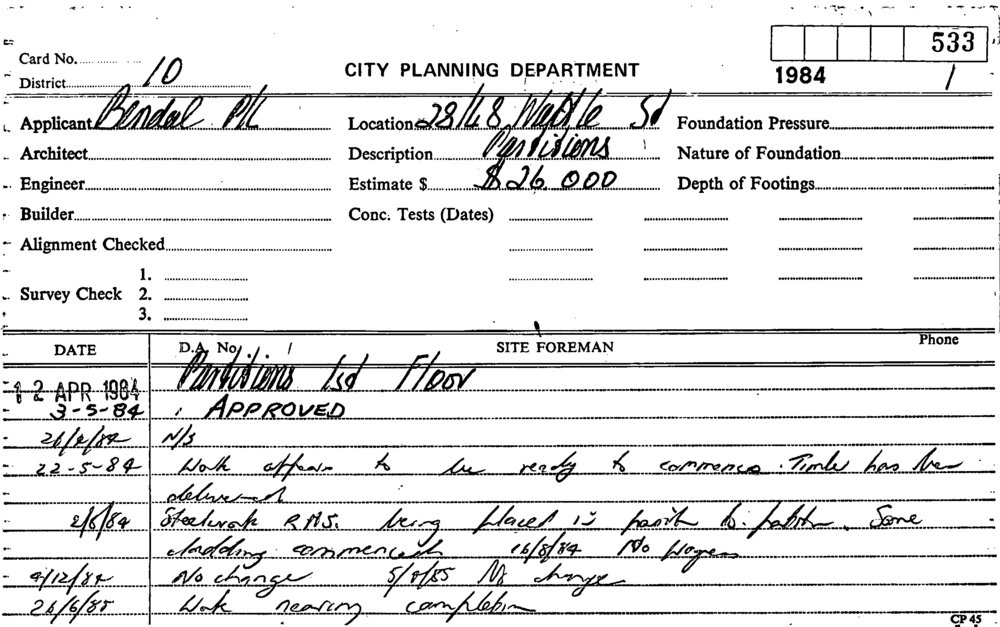 533
Card No.
District 10
CITY PLANNING DEPARTMENT
1984 1
Applicant Bendal P/L
Location 28/48 Wattle St
Foundation Pressure
Architect
Description Partitions
Nature of Foundation
Engineer
Estimate $ $ 26 000
Depth of Footings
Builder
Conc. Tests (Dates)
Alignment Checked
1.
Survey Check 2.
3.
DATE D.A. No. / SITE FOREMAN Phone
Partitions 1st Floor
12 APR 1984
3-5-84 APPROVED
N/S
22-5-84 Work appears to be ready to commence. Timber has been
delivered
Steelwork R.H.S. being placed in position to Some
cladding commenced 16/8/84 No Progress
4/12/84 No change No change
26/6/85 Work nearing completion
CP 45